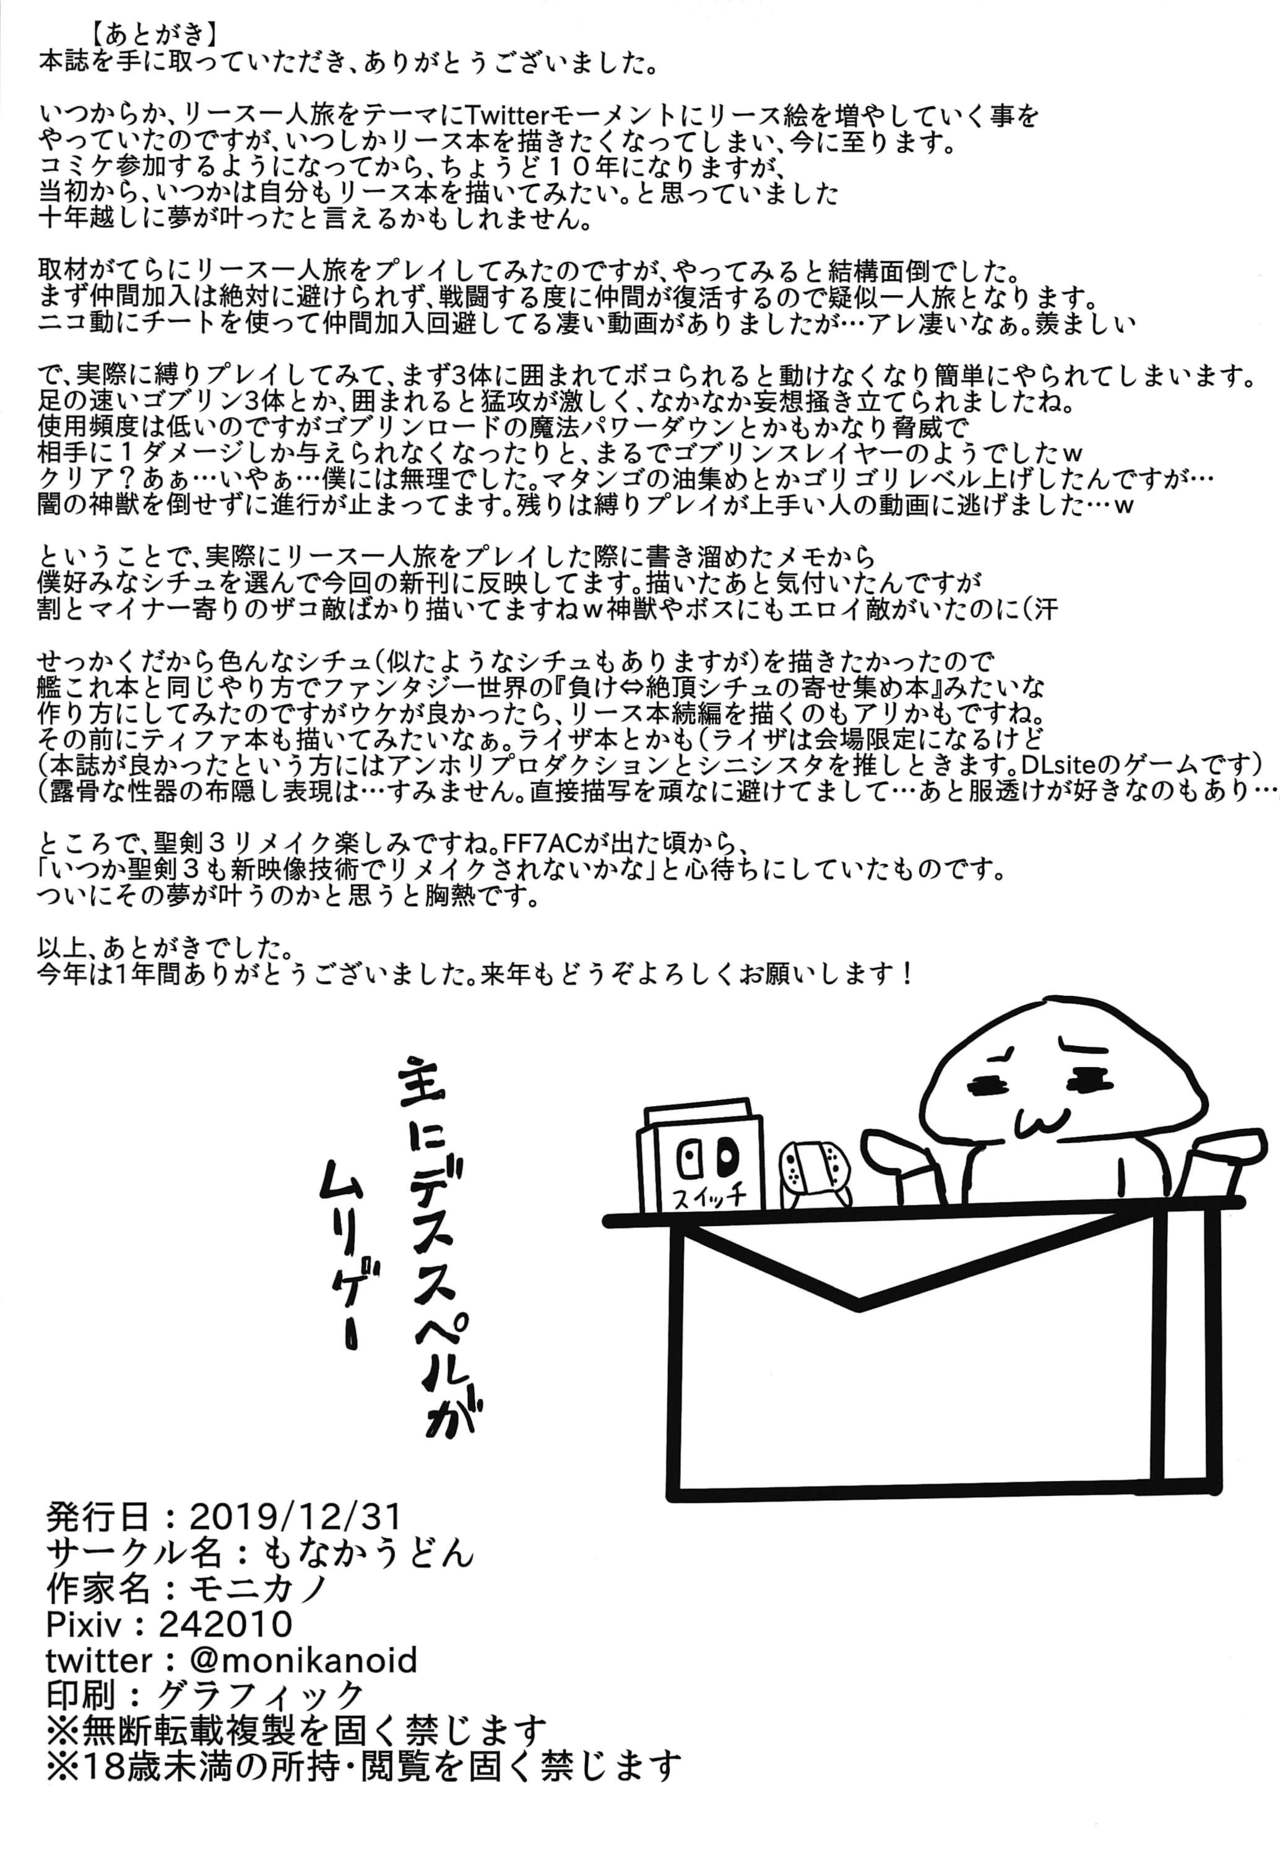 【あとがき】
本誌を手に取っていただき、ありがとうございました。
いつからか、リース一人旅をテーマにTwitterモーメントにリース絵を増やしていく事を
やっていたのですが、いつしかリース本を描きたくなってしまい、今に至ります。
コミケ参加するようになってから、ちょうど１０年になりますが、
当初から、いつかは自分もリース本を描いてみたい。と思っていました
十年越しに夢が叶ったと言えるかもしれません。
取材がてらにリース一人旅をプレイしてみたのですが、やってみると結構面倒でした。
まず仲間加入は絶対に避けられず、戦闘する度に仲間が復活するので疑似一人旅となります。
ニコ動にチートを使って仲間加入回避してる凄い動画がありましたが…アレ凄いなぁ。羨ましい
で、実際に縛りプレイしてみて、まず3体に囲まれてボコられると動けなくなり簡単にやられてしまいます。
足の速いゴブリン3体とか、囲まれると猛攻が激しく、なかなか妄想掻き立てられましたね。
使用頻度は低いのですがゴブリンロードの魔法パワーダウンとかもかなり脅威で
相手に１ダメージしか与えられなくなったりと、まるでゴブリンスレイヤーのようでしたｗ
クリア？あぁ…いやぁ…僕には無理でした。マタンゴの油集めとかゴリゴリレベル上げしたんですが…
闇の神獣を倒せずに進行が止まってます。残りは縛りプレイが上手い人の動画に逃げました…ｗ
ということで、実際にリース一人旅をプレイした際に書き溜めたメモから
僕好みなシチュを選んで今回の新刊に反映してます。描いたあと気付いたんですが
割とマイナー寄りのザコ敵ばかり描いてますねｗ神獣やボスにもエロイ敵がいたのに（汗
せっかくだから色んなシチュ（似たようなシチュもありますが）を描きたかったので
艦これ本と同じやり方でファンタジー世界の『負け⇔絶頂シチュの寄せ集め本』みたいな
作り方にしてみたのですがウケが良かったら、リース本続編を描くのもアリかもですね。
その前にティファ本も描いてみたいなぁ。ライザ本とかも（ライザは会場限定になるけど
（本誌が良かったという方にはアンホリプロダクションとシニシスタを推しときます。DLsiteのゲームです）
（露骨な性器の布隠し表現は…すみません。直接描写を頑なに避けてまして…あと服透けが好きなのもあり…
ところで、聖剣３リメイク楽しみですね。FF7ACが出た頃から、
「いつか聖剣３も新映像技術でリメイクされないかな」と心待ちにしていたものです。
ついにその夢が叶うのかと思うと胸熱です。
以上、あとがきでした。
今年は1年間ありがとうございました。来年もどうぞよろしくお願いします！
主にデススペルが
ムリゲー
スイッチ
発行日：2019/12/31
サークル名：もなかうどん
作家名：モニカノ
Pixiv：242010
twitter：@monikanoid
印刷：グラフィック
※無断転載複製を固く禁じます
※18歳未満の所持・閲覧を固く禁じます